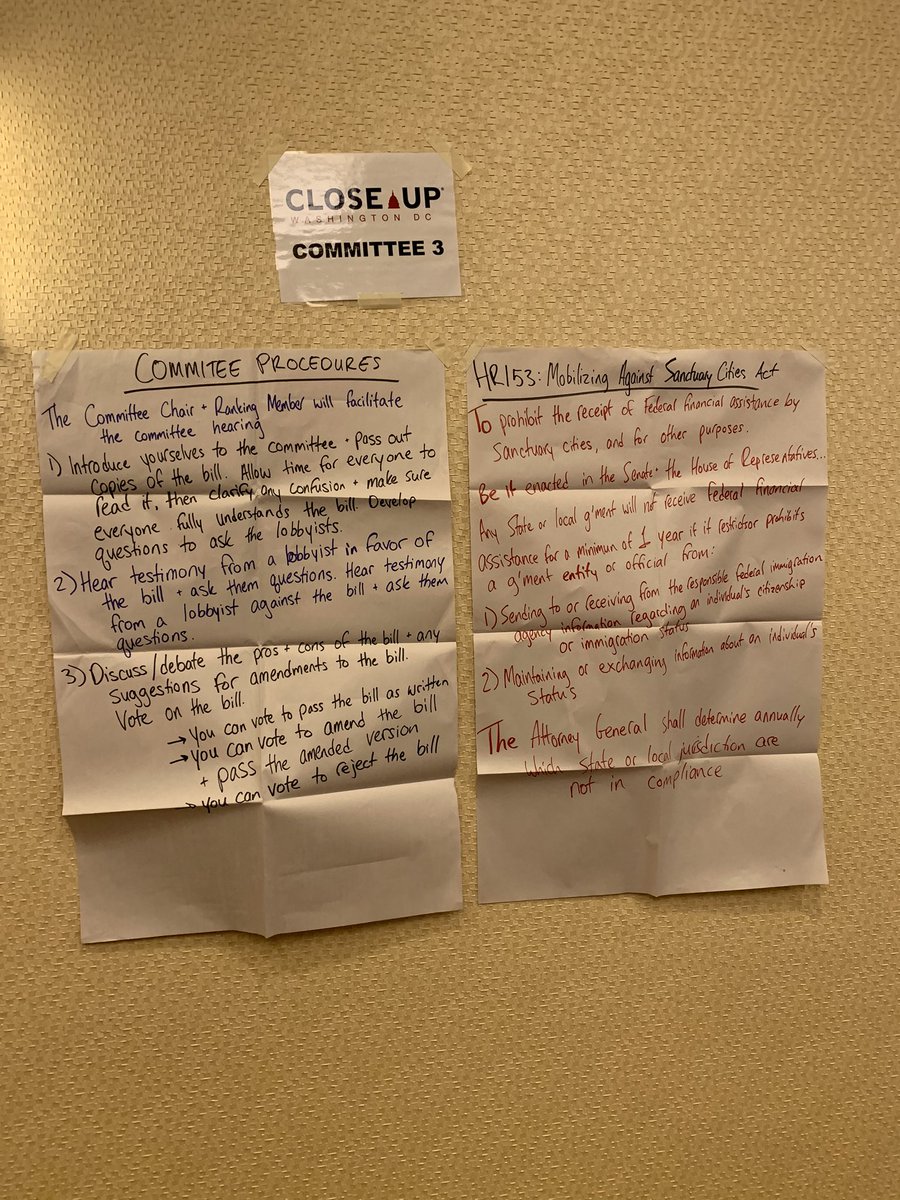 CLOSE UP®
WASHINGTON DC
COMMITTEE 3
COMMITEE PROCEDURES
The Committee Chair + Ranking Member will facilitate
the committee hearing
1) Introduce yourselves to the committee + pass out
copies of the bill. Allow time for everyone to
read it, then clarify any confusion + make sure
everyone fully understands the bill. Develop
questions to ask the lobbyists.
2) Hear testimony from a lobbyist in favor of
the bill + ask them questions. Hear testimony
from a lobbyist against the bill + ask them
questions.
3) Discuss/debate the pros + cons of the bill + any
suggestions for amendments to the bill.
Vote on the bill.
→ You can vote to pass the bill as written
→ You can vote to amend the bill
+ pass the amended version
→ you can vote to reject the bill
HR153: Mobilizing Against Sanctuary Cities Act
To prohibit the receipt of Federal financial assistance by
Sanctuary cities, and for other purposes.
Be it enacted in the Senate + the House of Representatives...
Any State or local g'ment will not receive Federal Financial
assistance for a minimun of 1 year if it restricts or prohibits
a g'ment entity or official from:
1) Sending to or receiving from the responsible federal immigration
agency information regarding an individual's citizenship
or immigration status
2) Maintaining or exchanging information about an individual's
Status
The Attorney General shall determine annually
which State or local jurisdiction are
not in compliance